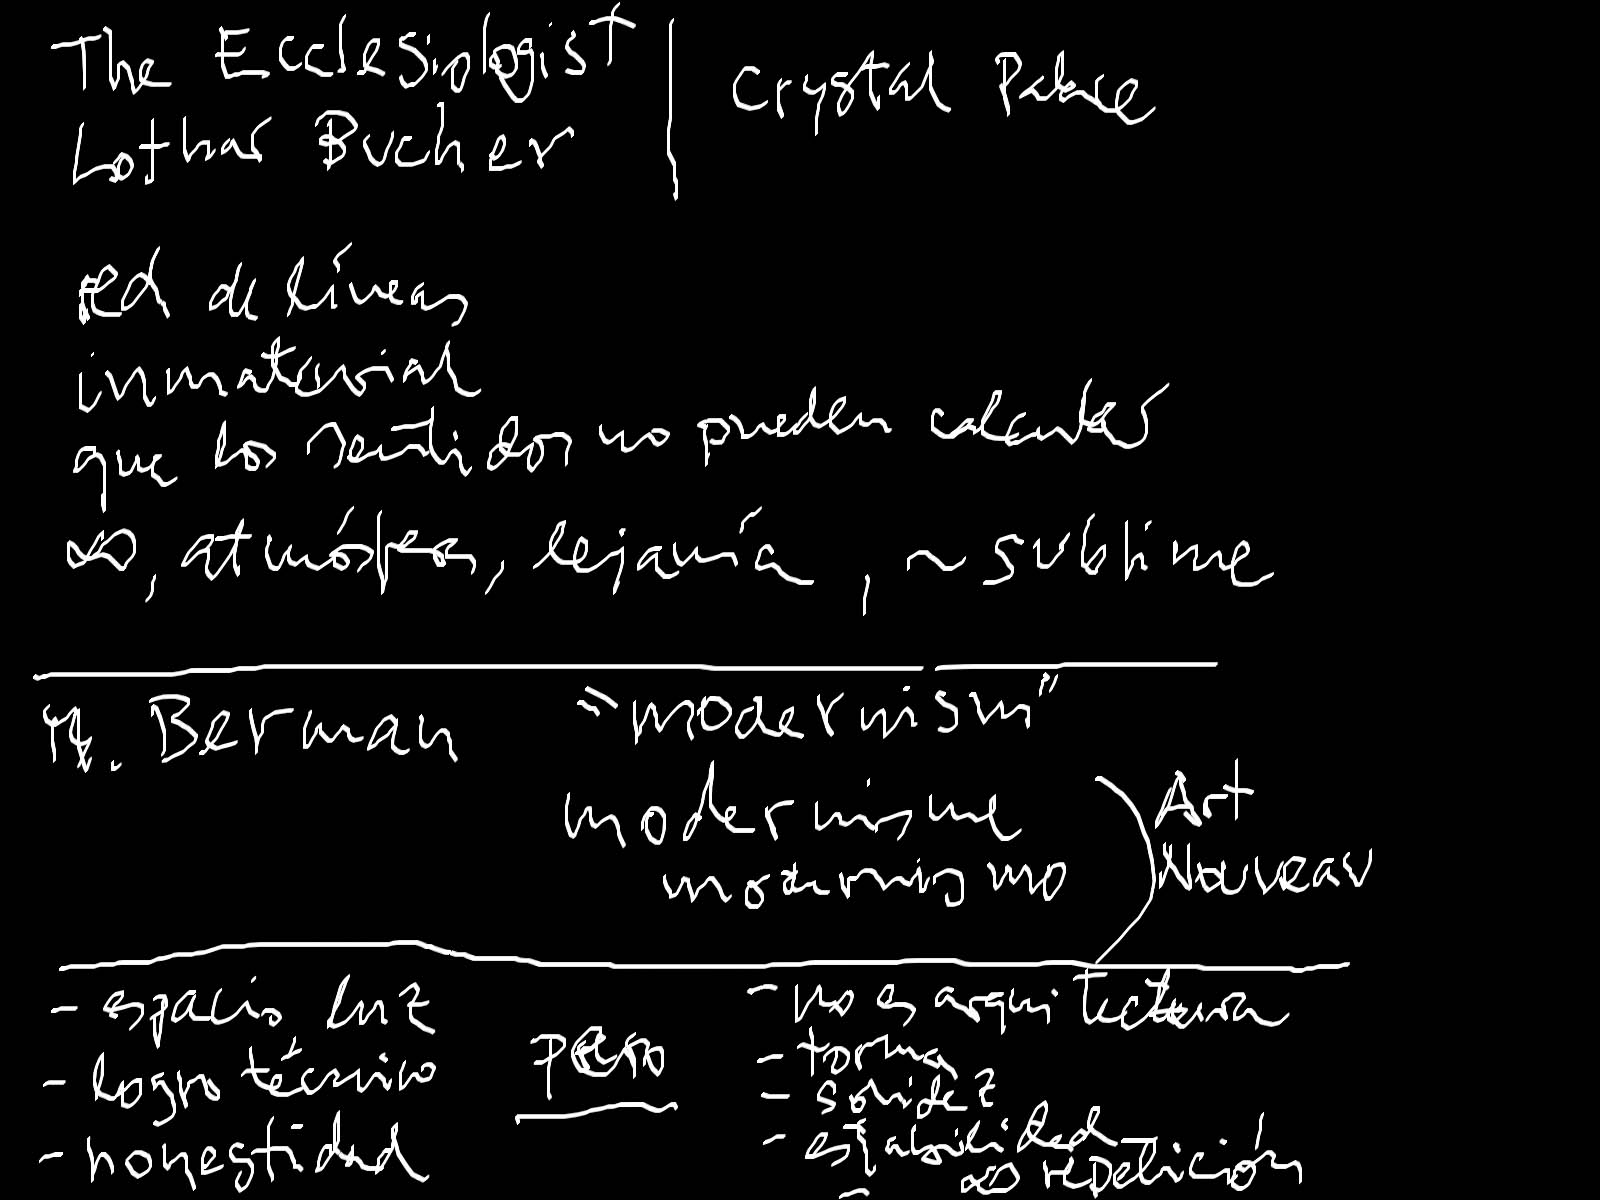 The Ecclesiologist
Lothar Bucher
Crystal Palace
red de líneas
inmaterial
que los sentidos no pueden calcular
∞, atmósfera, lejanía, ~ sublime
M. Berman
"modernism"
modernisme
modernismo
Art
Nouveau
- espacio luz
- logro técnico
- honestidad
pero
- no es arquitectura
- forma
- solidez
- estabilidad
∞ repetición